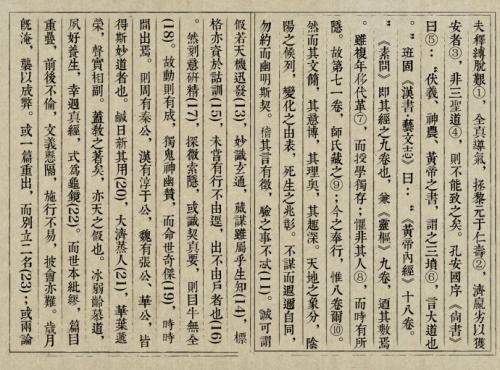 夫釋縛脫艱①,全真導氣,拯黎元于仁壽②,濟羸劣以獲
安者③,非三聖道④,則不能致之矣。孔安國序《尚書》
曰⑤:“伏羲、神農、黃帝之書,謂之三墳⑥,言大道也
。”班固《漢書·藝文志》曰:“《黃帝內經》十八卷。
”《素問》即其經之九卷也,兼《靈樞》九卷,迺其數焉
。雖複年移代革⑦,而授學獨存;懼非其人⑧,而時有所
隱。故第七一卷,師氏藏之⑨;今之奉行,惟八卷爾⑩。
然而其文簡,其意博,其理奧,其趣深。天地之象分,陰
陽之候列,變化之由表,死生之兆彰。不謀而遐邇自同,
勿約而幽明斯契。稽其言有徵,驗之事不忒(11)。誠可謂
假若天機迅發(13),妙識玄通,蕆謀雖屬乎生知(14),標
格亦資於詁訓(15),未嘗有行不由逕、出不由戶者也(16)
。然刻意研精(17),探微索隱,或識契真要,則目牛無全
(18)。故動則有成,獨鬼神幽贊,而命世奇傑(19),時時
間出焉。則周有秦公,漢有淳于公,魏有張公、華公,皆
得斯妙道者也。鹹日新其用(20),大濟蒸人(21),華葉遞
榮,聲實相副。蓋教之著矣,亦天之假也。冰弱齡慕道,
夙好養生,幸遇真經,式為龜鏡(22)。而世本紕繆,篇目
重疊,前後不倫,文義懸隔,施行不易,披會亦難。歲月
既淹,襲以成弊。或一篇重出,而別立二名(23);或兩論